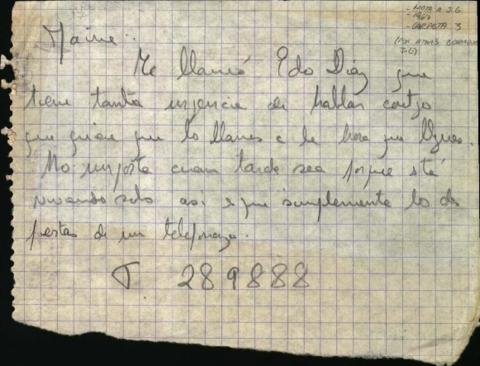 - NOTA A J.G.
- 1967
- CARPETA 3
(POR ATRÁS BORRADOR
J.G)
Jaime:
Me llamó Edo Díaz que
tiene tanta urgencia de hablar contigo
que quiere que lo llames a la hora que llgues.
No importa cuan tarde sea porque sta
viviendo solo así q que simplemente lo des
piertas de un telefonazo.
T 289888